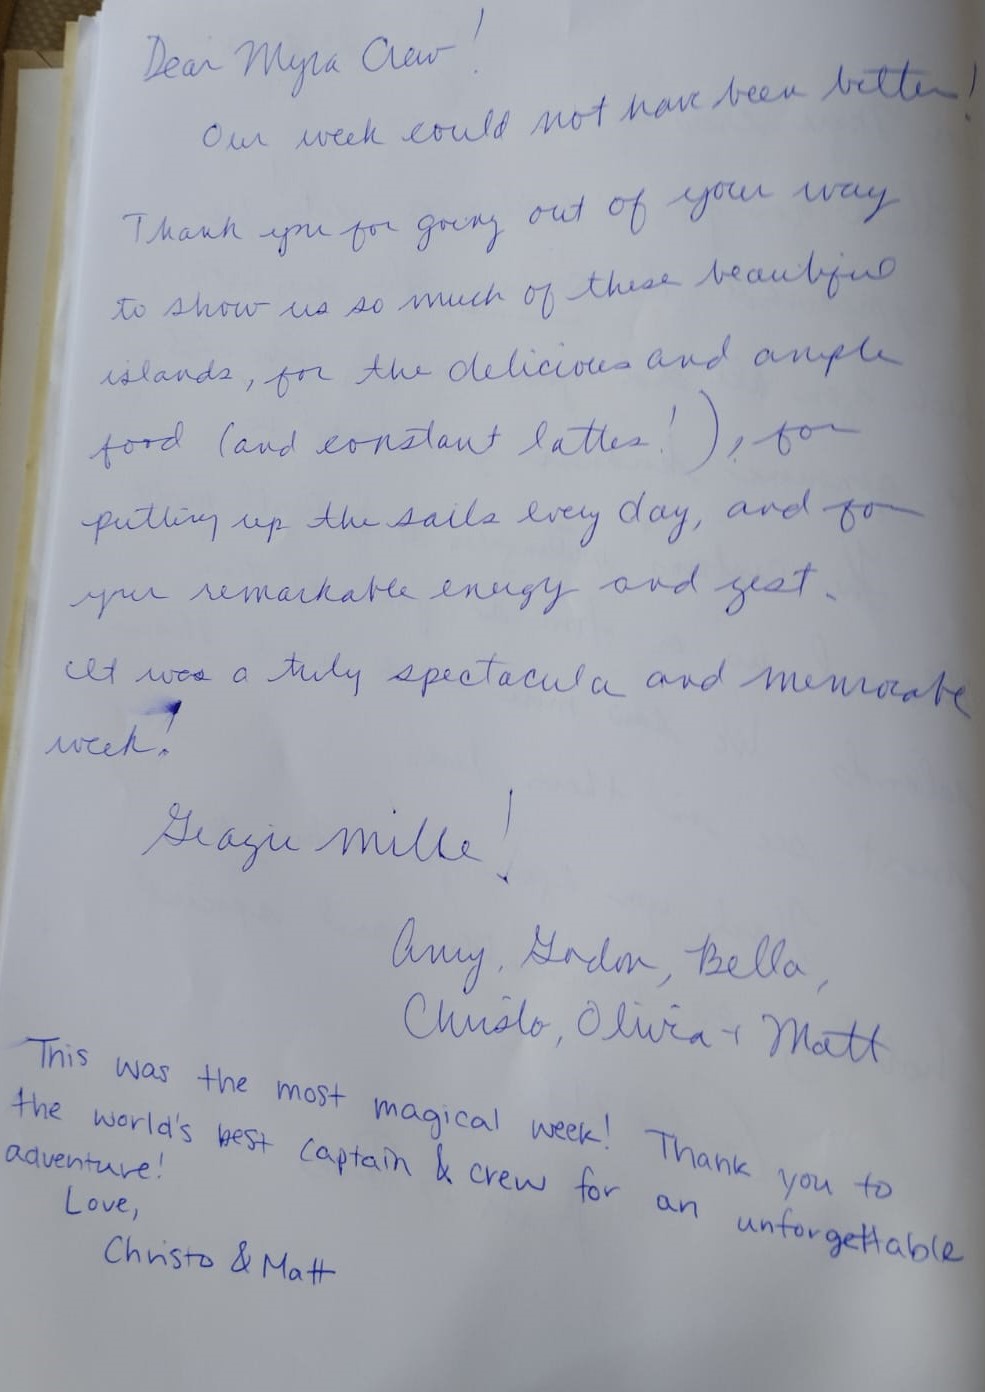 Dear Myra Crew!
Our week could not have been better!
Thank you for going out of your way
to show us so much of these beautiful
islands, for the delicious and ample
food (and constant lattes!), for
putting up the sails every day, and for
your remarkable energy and zest.
It was a truly spectacular and memorable
week!
Grazie mille!
Amy, Gordon, Bella,
Christo, Olivia + Matt
This was the most magical week! Thank you to
the world's best captain & crew for an unforgettable
adventure!
Love,
Christo & Matt